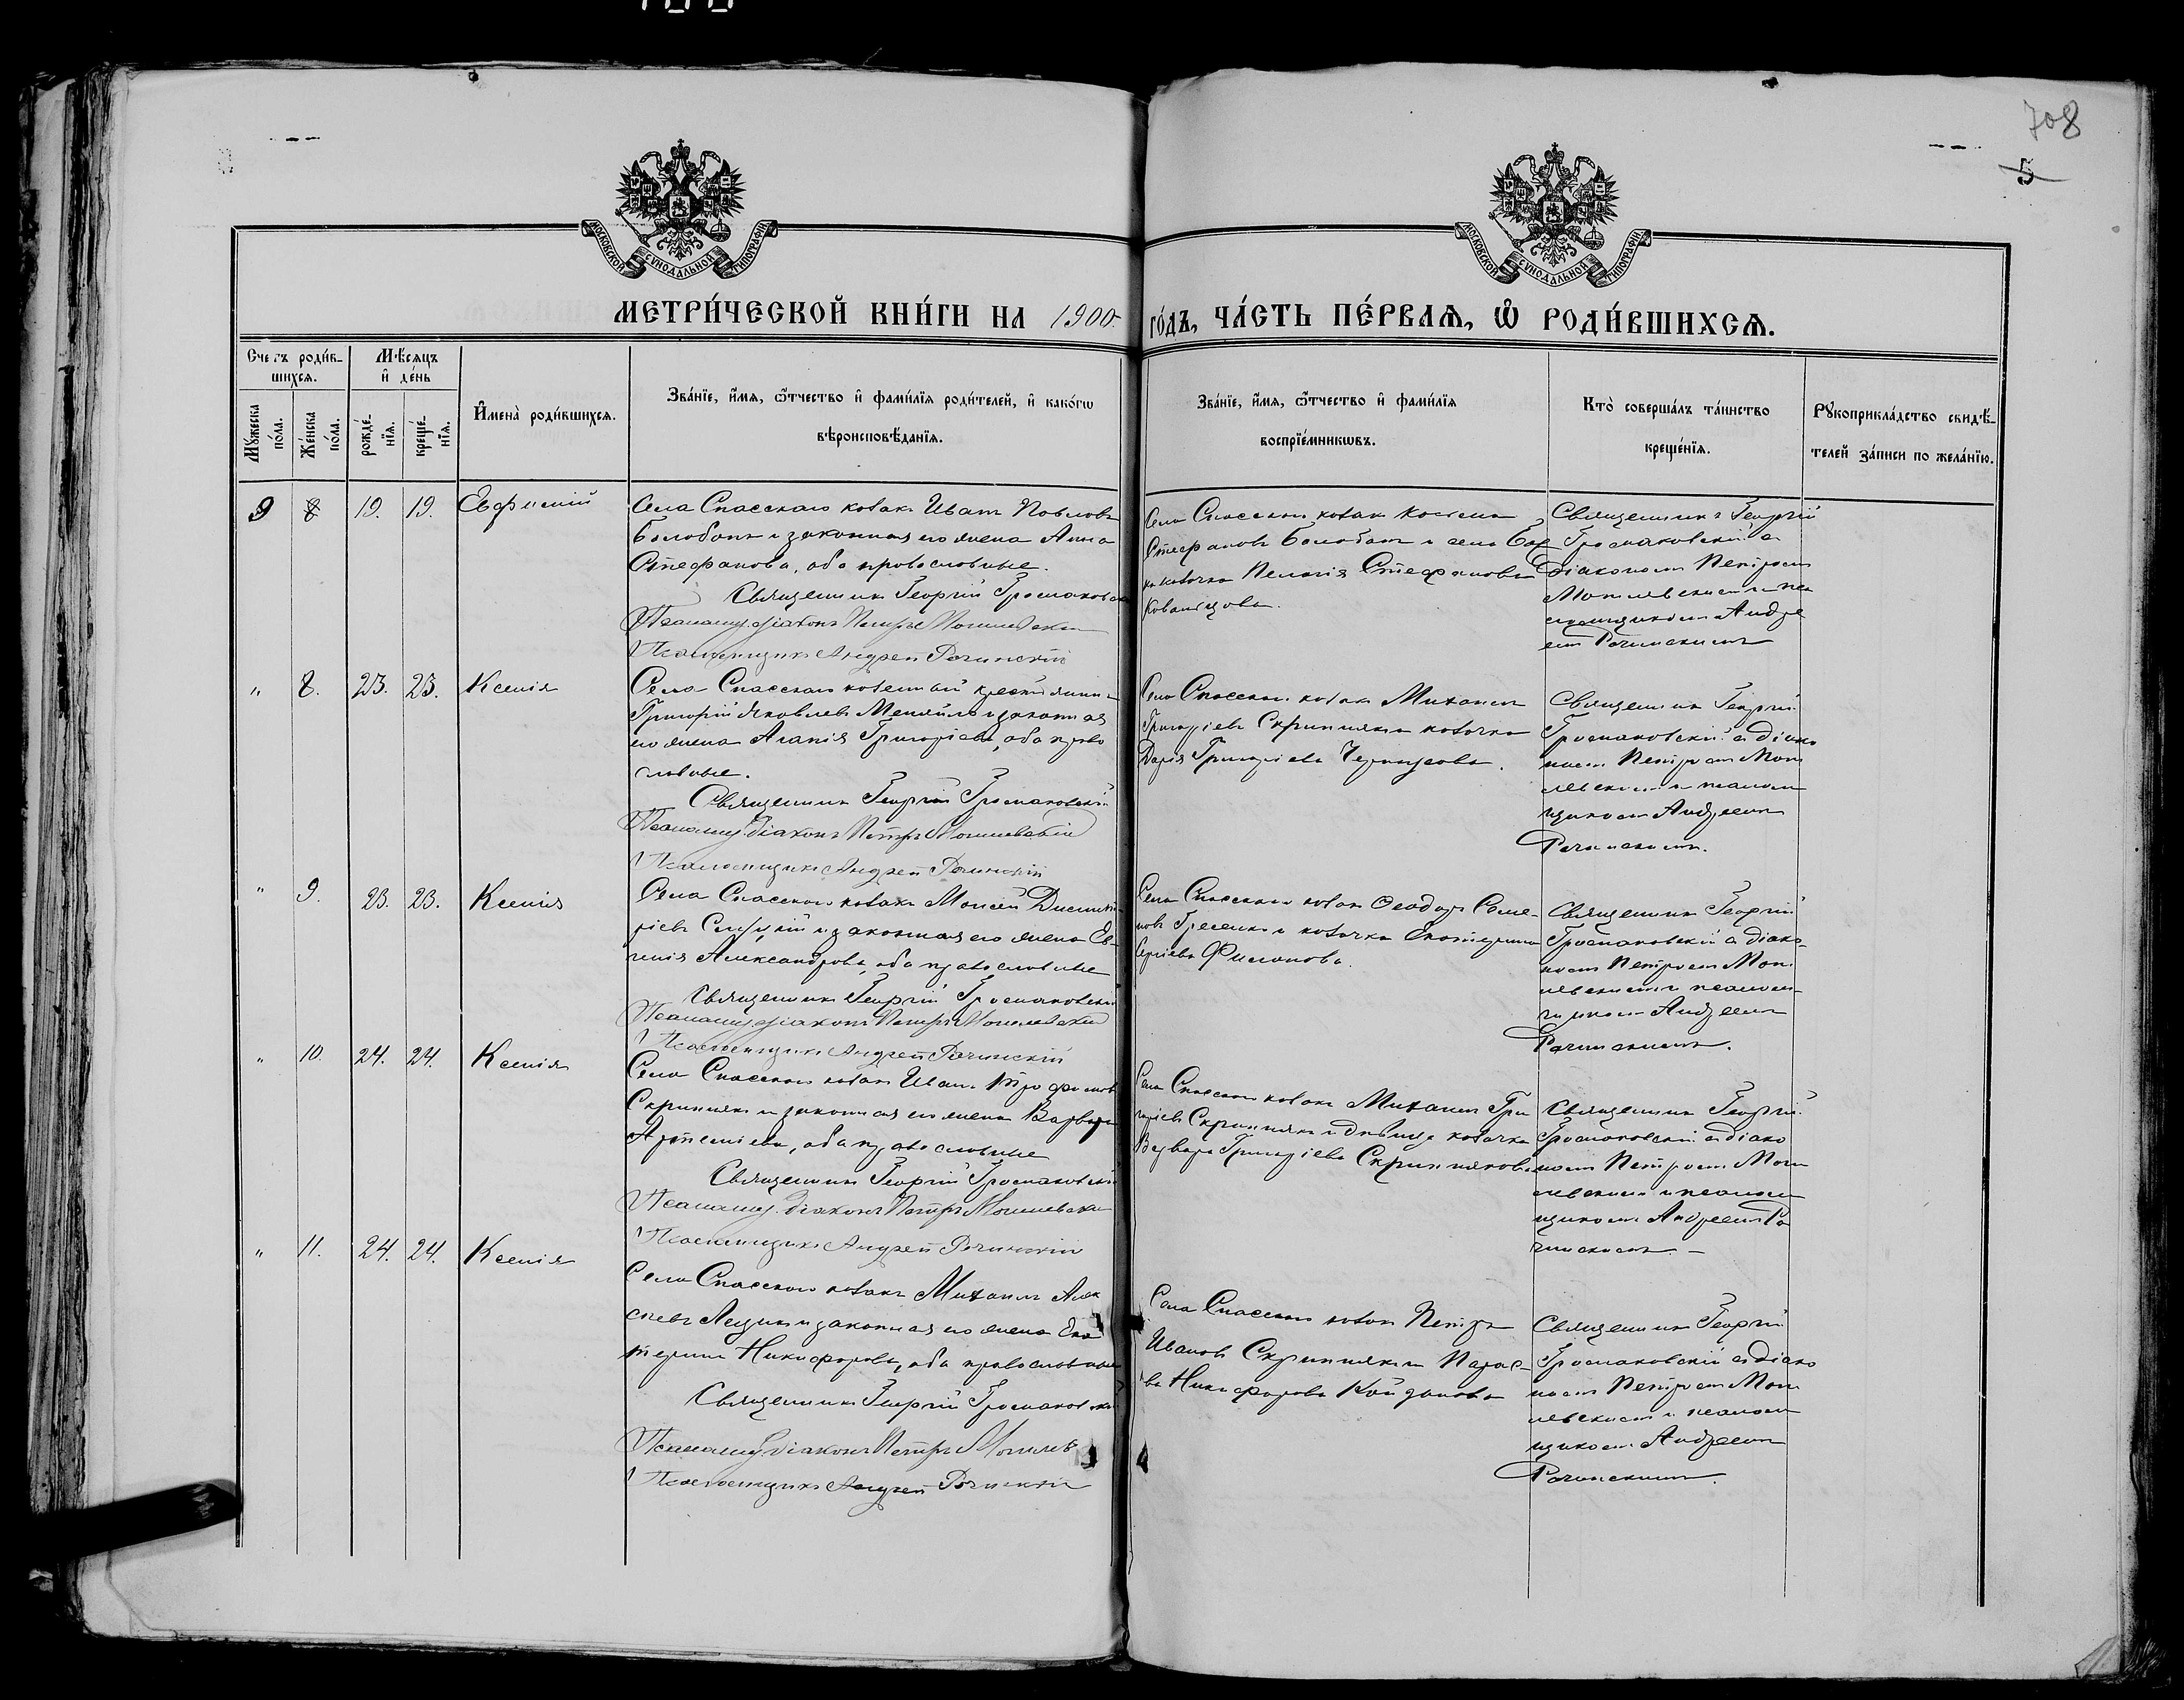 708
5
МОСКОВСКОЙ СѴНОДАЛЬНОЙ ТИПОГРАФІИ
МОСКОВСКОЙ СѴНОДАЛЬНОЙ ТИПОГРАФІИ
МЕТРИ́ЧЕСКОЙ КНИ́ГИ НА 1900 ГО́ДЪ, ЧА́СТЬ ПЕ́РВАѦ, Ѡ РОДИ́ВШИХСѦ.
Счетъ роди́в-
шихся.
Мѣ́сяцъ
и҆ де́нь
Мꙋ́жеска по́ла.
Же́нска по́ла.
рожде́-нїя.
креще́-нїя.
И҆мена̀ роди́вшихся.
Зва́нїе, и҆́мя, ѻ҆́тчество и҆ фами́лїя роди́телей, и҆ како́гѡ
вѣроисповѣ́данїя.
Зва́нїе, и҆́мя, ѻ҆́тчество и҆ фами́лїя
воспрїе́мникѡвъ.
Кто̀ соверша́лъ та́инство
креще́нїя.
Рꙋкоприкла́дство свидѣ́-
телей за́писи по жела́нїю.
9 8 19. 19. Евфимій
Села Спасскаго козакъ Иванъ Павловъ
Балобанъ и законная его жена Анна
Стефанова, оба православные.
Священникъ Георгій Громаковскій
Псаломщ. діаконъ Петръ Могилевскій
Псаломщикъ Андрей Рачинскій
Села Спасскаго козакъ
Стефановъ Балобанъ и села
козачка Пелагія Стефанова
Священникъ Георгій
Громаковскій съ
діакономъ Петромъ
Могилевскимъ и пса
ломщикомъ Андре
емъ Рачинскимъ
" 8. 23. 23. Ксенія
Села Спасскаго казенный крестьянинъ
Григорій Яковлевъ и законная
его жена Агапія Григоріева, оба право
славные.
Священникъ Георгій Громаковскій
Псаломщ. діаконъ Петръ Могилевскій
Псаломщикъ Андрей Рачинскій
Села Спасскаго козакъ Михаилъ
Григоріевъ Скрипнякъ и козачка
Дарія Григоріева
Священникъ Георгій
Громаковскій съ діако
номъ Петромъ Моги
левскимъ и псалом
щикомъ Андреемъ
Рачинскимъ.
" 9. 23. 23. Ксенія
Села Спасскаго козакъ Моисей Димит
ріевъ и законная его жена Ев
генія Александрова, оба православные
Священникъ Георгій Громаковскій
Псаломщ. діаконъ Петръ Могилевскій
Псаломщикъ Андрей Рачинскій
Села Спасскаго козакъ Феодоръ Семе-
новъ и козачка Екатерина
Сергіева Филонова.
Священникъ Георгій
Громаковскій съ діако-
номъ Петромъ Моги
левскимъ и псалом-
щикомъ Андреемъ
Рачинскимъ.
" 10. 24. 24. Ксенія
Села Спасскаго козакъ Иванъ Трофимовъ
Скрипнякъ и законная его жена Варвара
Артеміева, оба православные
Священникъ Георгій Громаковскій
Псаломщ. діаконъ Петръ Могилевскій
Псаломщикъ Андрей Рачинскій
Села Спасскаго козакъ Михаилъ Гри
горіевъ Скрипнякъ и дѣвица козачка
Варвара Григоріева Скрипнякова
Священникъ Георгій
Громаковскій съ діако
номъ Петромъ Моги
левскимъ и псалом
щикомъ Андреемъ Ра
чинскимъ. –
" 11. 24. 24. Ксенія
Села Спасскаго козакъ Михаилъ Алек
сѣевъ и законная его жена Ека
терина Никифорова, оба православные
Священникъ Георгій Громаковскій
Псаломщ. діаконъ Петръ Могилев
Псаломщикъ Андрей Рачинскій
Села Спасскаго козакъ Петръ
Ивановъ Скрипнякъ и Парас-
ва Никифорова
Священникъ Георгій
Громаковскій съ діако
номъ Петромъ Моги
левскимъ и псалом
щикомъ Андреемъ
Рачинскимъ.